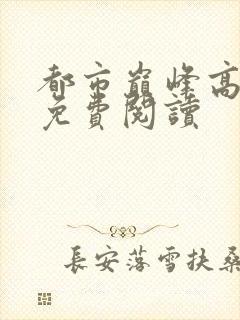 都市巔峰高
免費閱讀
長安落雪扶桑